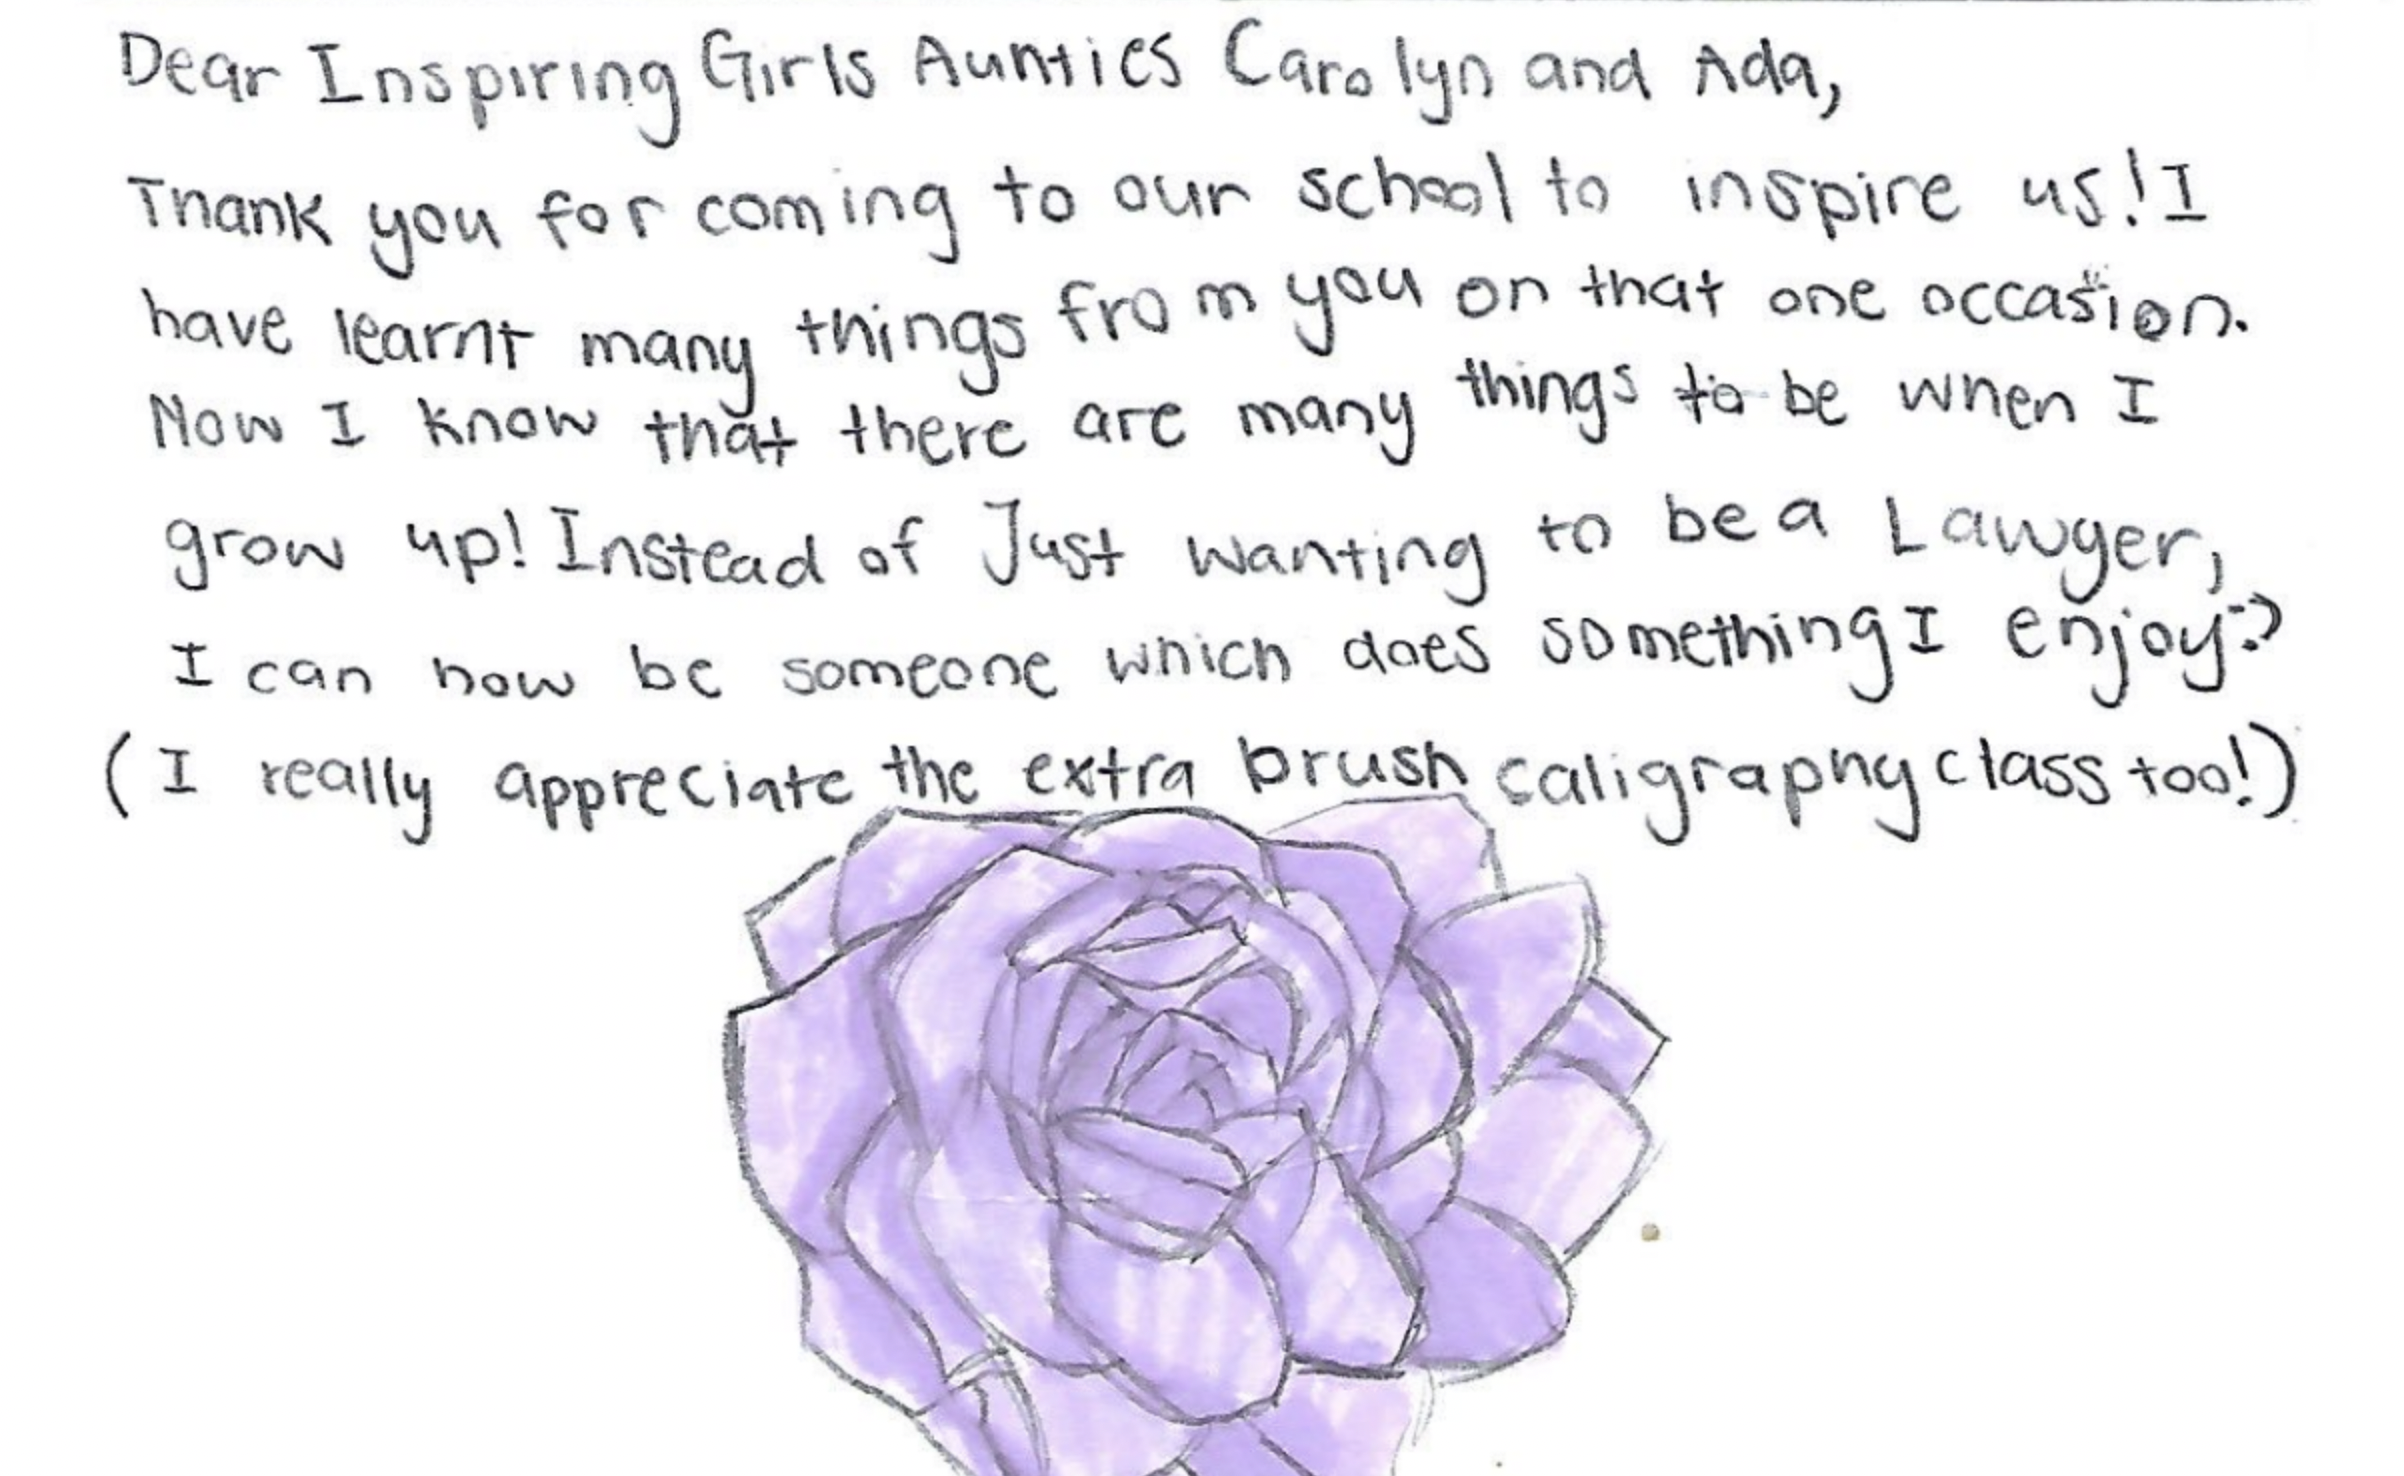 Dear Inspiring Girls Aunties Carolyn and Ada,
Thank you for coming to our school to inspire us! I
have learnt many things from you on that one occasion.
Now I know that there are many things to be when I
grow up! Instead of Just wanting to be a Lawyer,
I can now be someone which does something I enjoy:)
(I really appreciate the extra brush caligraphy class too!)